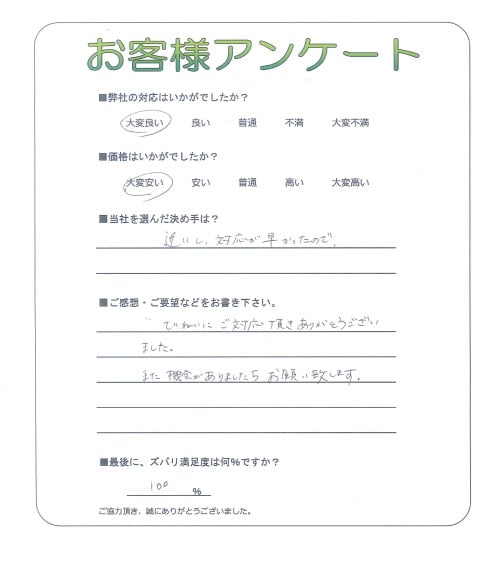 お客様アンケート
■弊社の対応はいかがでしたか？
大変良い 良い 普通 不満 大変不満
■価格はいかがでしたか？
大変安い 安い 普通 高い 大変高い
■当社を選んだ決め手は？
近いし、対応が早かったので、
■ご感想・ご要望などをお書き下さい。
ていねいにご対応頂きありがとうござい
ました。
また機会がありましたらお願い致します。
■最後に、ズバリ満足度は何％ですか？
100 %
ご協力頂き、誠にありがとうございました。